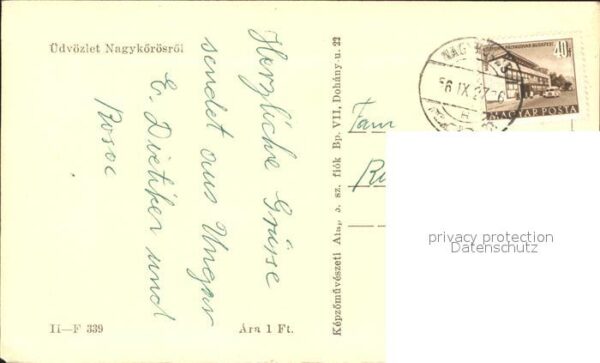 Üdvözlet Nagykőrösről
Herzliche Grüsse
sendet aus Ungar
E. Dietiker und
II—F 339
Ára 1 Ft.
Képzőművészeti Alap, o. sz. fiók Bp. VII, Dohány-u. 22
56 IX 27
40f
MAGYAR POSTA
Fam
privacy protection
Datenschutz